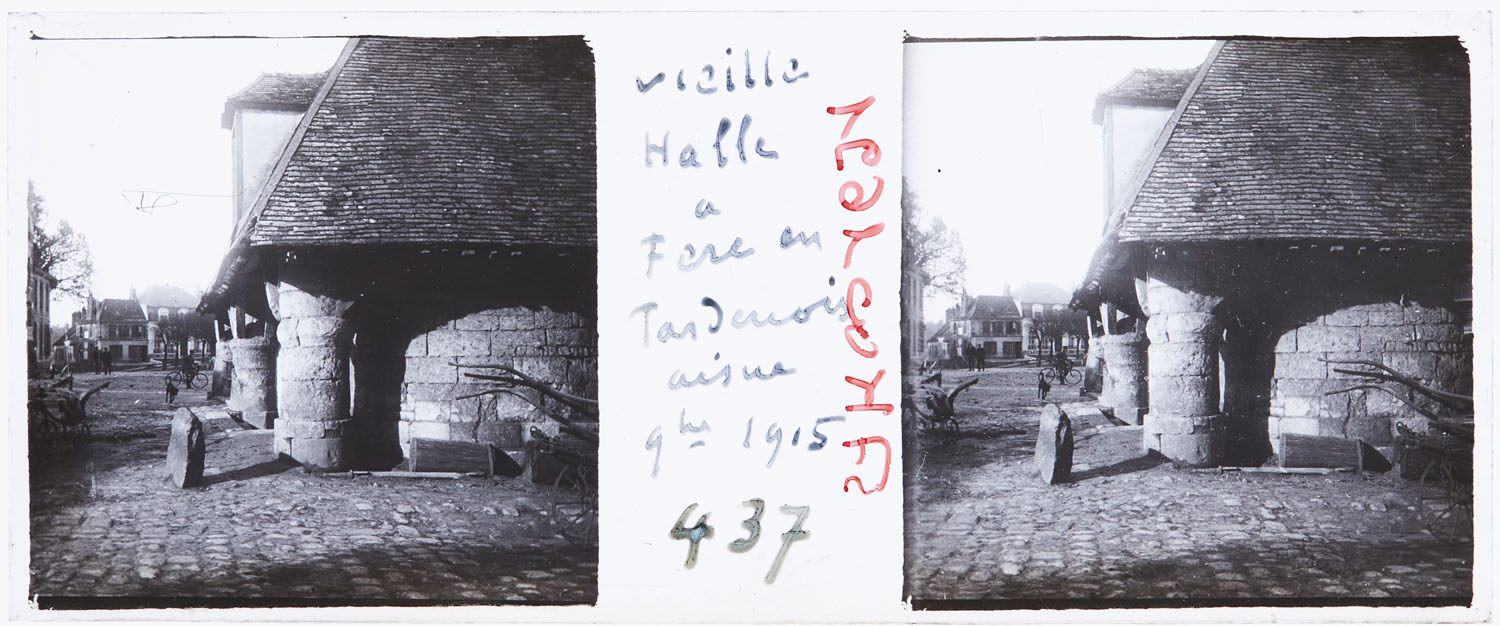 vieille
Halle
a
Fere en
Tardenois
aisne
9bre 1915
437